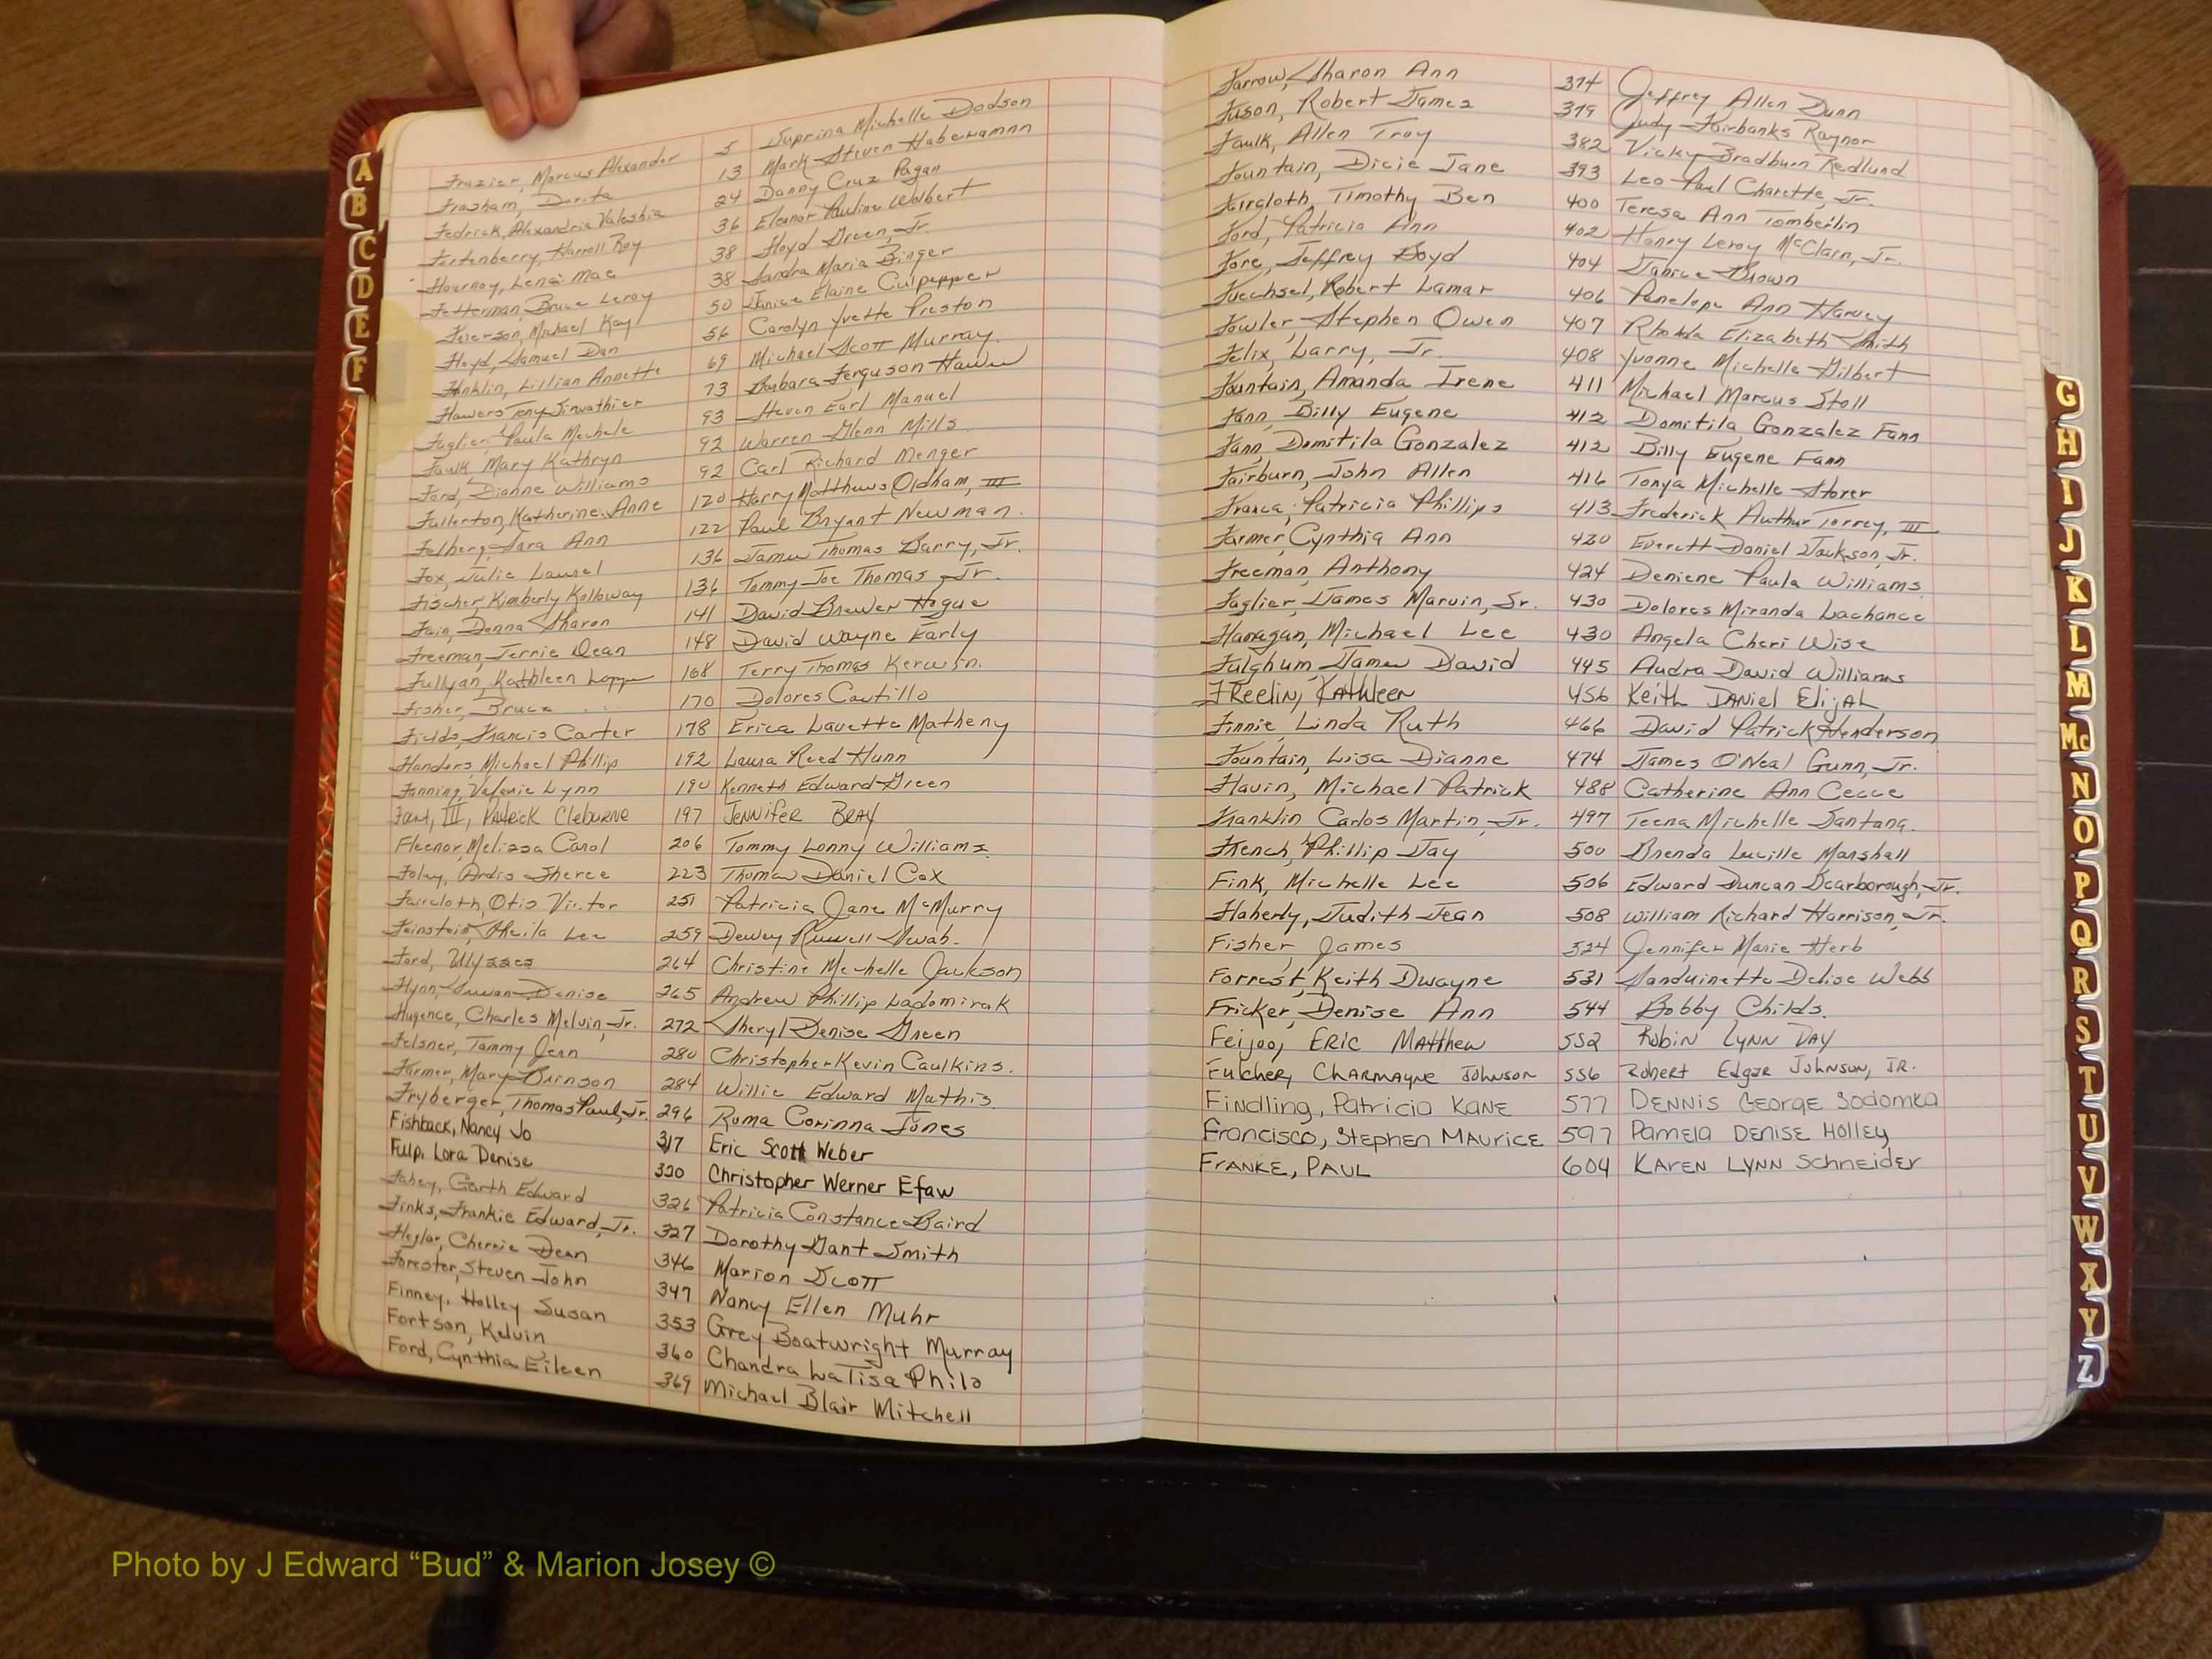 A
B
C
D
E
F
Frazier, Marcus Alexander 5 Suprina Michelle Dodson
Frasham, Dorita 13 Mark Steven Habermann
Fedrick, Alexandria Valeshia 24 Danny Cruz Pagan
Fortenberry, Harrell Roy 36 Eleanor Pauline Walbert
Flournoy, Lena Mae 38 Floyd Green, Jr.
Fetterman, Bruce Leroy 38 Sandra Maria Binger
Frierson, Michael Kay 50 Janice Elaine Culpepper
Floyd, Samuel Dan 56 Carolyn Yvette Preston
Franklin, Lillian Annette 69 Michael Scott Murray
Flowers Tony 73 Barbara Ferguson
Faglier, Paula Mechele 93 Steven Earl Manuel
Faulk Mary Kathryn 92 Warren Glenn Mills
Ford, Dianne Williams 92 Carl Richard Menger
Fullerton, Katherine Anne 120 Harry Matthews Oldham, III
Felberg, Sara Ann 122 Paul Bryant Newman.
Fox, Julie Laurel 136 James Thomas Barry, Jr.
Fischer, Kimberly Kolloway 136 Tommy Joe Thomas, Jr.
Fain, Donna Sharon 141 David Brewer Hogue
Freeman, Jerrie Dean 148 David Wayne Early
Fullyan, Kathleen 168 Terry Thomas Kerwin.
Fisher, Bruce 170 Dolores Cautillo
Fields, Francis Carter 178 Erica Lavette Matheny
Flanders, Michael Phillip 192 Laura Reed Hunn
Fanning, Valerie Lynn 190 Kenneth Edward Green
Fant, III, Patrick Cleburne 197 Jennifer Bray
Fleenor, Melissa Carol 206 Tommy Lonny Williams
Foley, Ardis Sheree 223 Thomas Daniel Cox
Faircloth, Otis Victor 251 Patricia Jane McMurry
Feinstein, Sheila Lee 259 Dewey Russell Swab.
Ford, Ulysses 264 Christine Mechelle Jackson
Flynn, Susan Denise 265 Andrew Phillip Ladomirak
Flugence, Charles Melvin, Jr. 272 Sheryl Denise Green
Felsner, Tammy Jean 280 Christopher Kevin Caulkins.
Farmer, Mary Brinson 284 Willie Edward Mathis
Fryberger, Thomas Paul, Jr. 296 Roma Corinna Jones
Fishback, Nancy Jo 317 Eric Scott Weber
Fulp, Lora Denise 320 Christopher Werner Efaw
Fahey, Garth Edward 326 Patricia Constance Baird
Finks, Frankie Edward, Jr. 327 Dorothy Gant Smith
Flegler, Cherrie Dean 346 Marion Scott
Forester, Steven John 347 Nancy Ellen Muhr
Finney, Holley Susan 353 Grey Boatwright Murray
Fortson, Kelvin 360 Chandra LaTisa Philo
Ford, Cynthia Eileen 369 Michael Blair Mitchell
Farrow, Sharon Ann 374 Jeffrey Allen Dunn
Fuson, Robert James 379 Judy Fairbanks Raynor
Faulk, Allen Troy 382 Vicky Bradburn Redlund
Fountain, Dicie Jane 393 Leo Paul Charette, Jr.
Fairgloth, Timothy Ben 400 Teresa Ann Tomberlin
Ford, Patricia Ann 402 Henry Leroy McClarn, Jr.
Fore, Jeffrey Boyd 404 Janice Brown
Fuechsel, Robert Lamar 406 Penelope Ann Harvey
Fowler, Stephen Owen 407 Rhonda Elizabeth Smith
Felix, Larry, Jr. 408 Yvonne Michelle Gilbert
Fountain, Amanda Irene 411 Michael Marcus Stoll
Fann, Billy Eugene 412 Domitila Gonzalez Fann
Fann, Domitila Gonzalez 412 Billy Eugene Fann
Fairburn, John Allen 416 Tonya Michelle Storer
Franca, Patricia Phillips 413 Frederick Authur Torrey, III
Farmer, Cynthia Ann 420 Everett Daniel Jackson, Jr.
Freeman, Anthony 424 Deniene Paula Williams
Faglier, James Marvin, Sr. 430 Dolores Miranda Lachance
Flanagan, Michael Lee 430 Angela Cheri Wise
Fulghum, James David 445 Audra David Williams
Freelin, Kathleen 456 Keith Daniel Elijah
Finnie, Linda Ruth 466 David Patrick Henderson
Fountain, Lisa Dianne 474 James O'Neal Gunn, Jr.
Flavin, Michael Patrick 488 Catherine Ann Cecce
Franklin Carlos Martin, Jr. 497 Teena Michelle Santana.
French, Phillip Jay 500 Brenda Lucille Marshall
Fink, Michelle Lee 506 Edward Duncan Scarborough, Jr.
Flaherty, Judith Jean 508 William Richard Harrison, Jr.
Fisher, James 524 Jennifer Marie Herb
Forrest, Keith Dwayne 531 Sanduinette Delise Webb
Fricker, Denise Ann 544 Bobby Childs.
Feijoo, Eric Matthew 552 Robin Lynn Day
Fulcher, Charmayne Johnson 556 Robert Edgar Johnson, Jr.
Findling, Patricia Kane 577 Dennis George Sodomka
Francisco, Stephen Maurice 597 Pamela Denise Holley
Franke, Paul 604 Karen Lynn Schneider
G
H
I
J
K
L
M
Mc
N
O
P
Q
R
S
T
U
V
W
X
Y
Z
Photo by J Edward “Bud” & Marion Josey ©